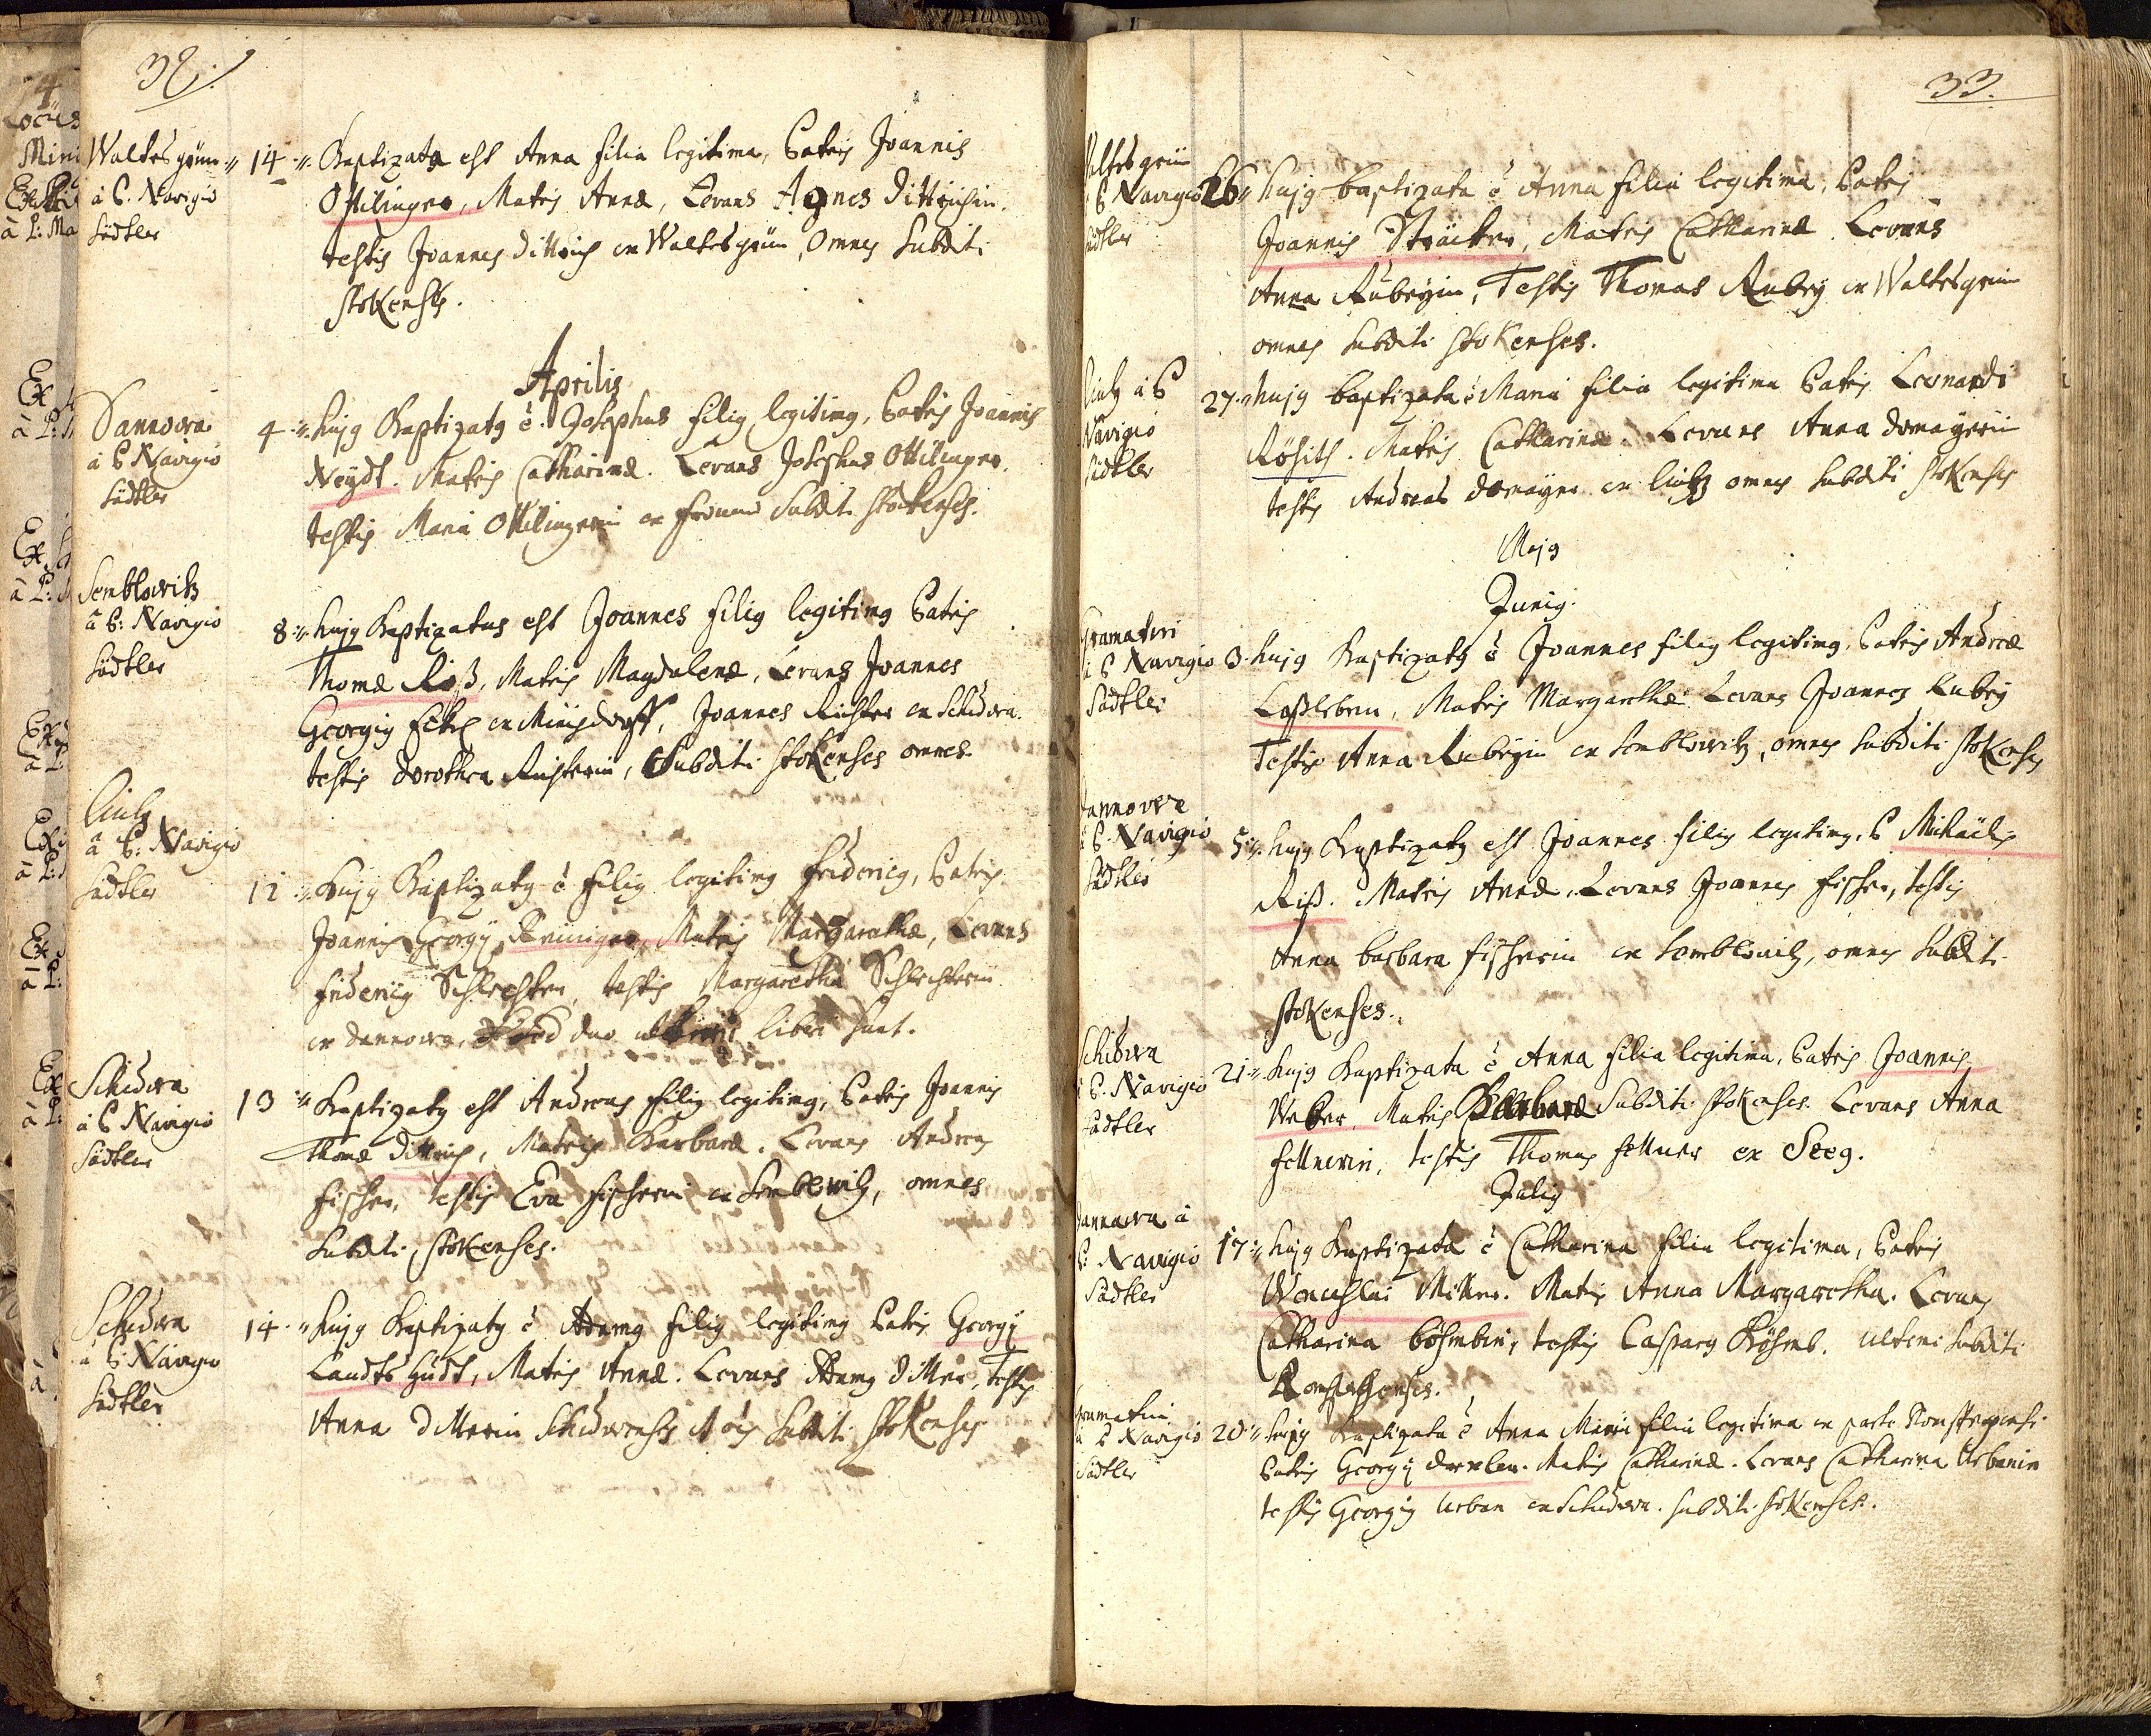 32.
Waltesgrün
à P. Navigio
Südtler
14 Baptizata est Anna filia legitima, Patris Joannis
Ottilinger, Matris Annæ, Levans Agnes Dittrichin.
testis Joannes Dittrich ex Waltesgrün, Omnes Subditi
stokenses.
Aprilis
Dannowa
à P. Navigio
Südtler
4. hujg Baptizatg ē Josephus filig legitimg, Patris Joannis
Neydt. Matris Catharinæ. Levans Josephus Ottilinger.
testis Maria Ottilingerin ex Subditi stokenses.
Semblowitz
à P: Navigio
Südtler
8. hujg Baptizatus est Joannes filig legitimg Patris
Thomæ Riß, Matris Magdalenæ, Levans Joannes
Georgig ex Minysdorff, Joannes Richter ex Schüdowa.
testis Dorothea Richterin, Subditi stokenses omnes.
Linz
à P: Navigio
Südtler
12. hujg Baptizatg ē filig legitimg Fridericg, Patris
Joannis Georgij Matris Margarethæ, Levans
Fridericg Schlechter, testis Margaretha Schlechterin
ex Dannowa, duo liberi sunt.
Schüdowa
à P Navigio
Südtler
13 Baptizatg est Andreas filig legitimg, Patris Joannis
Thomæ Dittrich, Matris Barbaræ. Levans Andreas
Fischer, testis Eva Fischerin ex Semblowitz, omnes
Subditi, stokenses.
Schüdowa
à P: Navigio
Südtler
14. hujg Baptizatg ē Adamg filig legitimg Patris Georgij
Matris Annæ. Levans Adamg Dittner, testis
Anna Dittnerin Schüdowenses Subditi stokenses
33.
Waltesgrün
P Navigio
Südtler
26 hujg baptizata ē Anna filia legitima, Patris
Joannis Sträcker, Matris Catharinæ. Levans
Anna Rubeyin, Testis Thomas Rubey ex Waltesgrün
omnes Subditi stokenses.
Linz à P
Navigio
Südtler
27. hujg baptizata ē Maria filia legitima Patris Leonardi
Röhith. Matris Catharinæ. Levans Anna Domayerin
testis Andreas Domayer ex Lintz omnes Subditi stokenses
Majg
Junig.
Gramatin
à P Navigio
Südtler
3. hujg Baptizatg ē Joannes filig legitimg. Patris Andreæ
Matris Margarethæ Levans Joannes Rubey
Testis Anna Rubeyin ex Semblowitz, omnes Subditi stokenses
Dannowa
à P. Navigio
Südtler
5. hujg Baptizatg est Joannes filig legitimg. P Michaëlis
Riß. Matris Annæ. Levans Joannes Fischer, testis
Anna barbara Fischerin ex Semblowitz, omnes Subditi
stokenses.
Schüdowa
à P. Navigio
Südtler
21. hujg Baptizata ē Anna filia legitima, Patris Joannis
Weber, Matris Barbaræ Subditi stokenses. Levans Anna
Fellnerin, testis Thomas Fellner ex Seeg.
Julig
Dannowa à
P: Navigio
Südtler
17. hujg Baptizata ē Catharina filia legitima, Patris
Wenceslai Miller. Matris Anna Margaretha. Levans
Catharina Böhmbin, testis Casparg Böhmb. ultimi subditi
Gramatin
à P Navigio
Südtler
20. hujg Baptizata ē Anna Maria filia legitima ex parte
Patris Georgij Drexler. Matris Catharinæ. Levans Catharina Urbanin
testis Georgig Urban ex Schüdowa. Subditi stokenses.